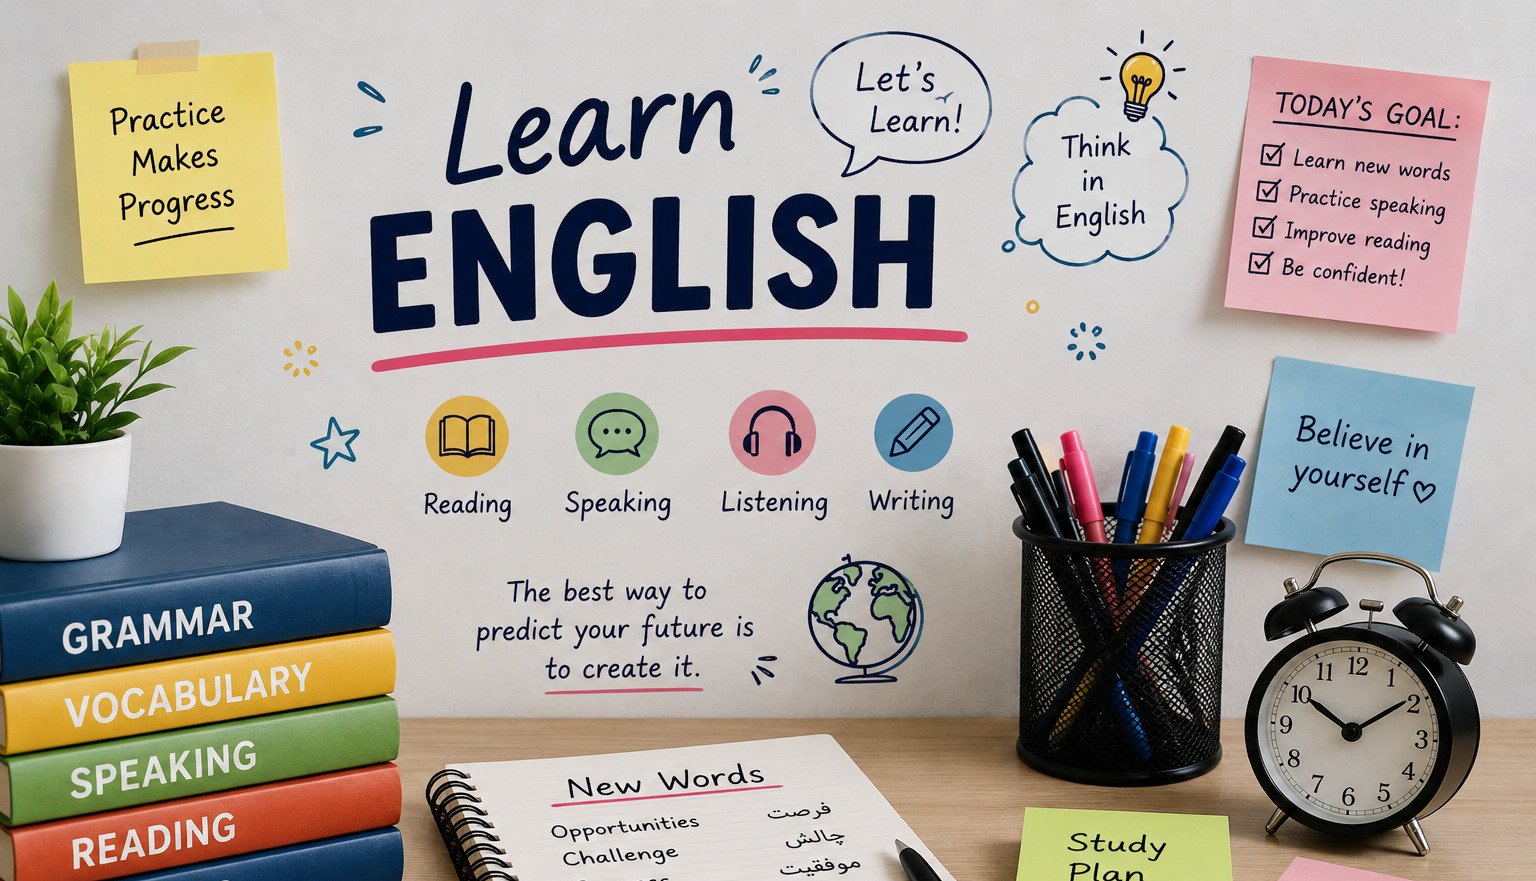 Practice
Makes
Progress
Learn
ENGLISH
Let's
Learn!
Think
in
English
TODAY'S GOAL:
Learn new words
Practice speaking
Improve reading
Be confident!
Believe in
yourself
Reading
Speaking
Listening
Writing
The best way to
predict your future is
to create it.
GRAMMAR
VOCABULARY
SPEAKING
READING
New Words
Opportunities فرصت
Challenge چالش
موفقیت
Study
Plan
11 12 1
10 2
9 3
8 4
7 6 5